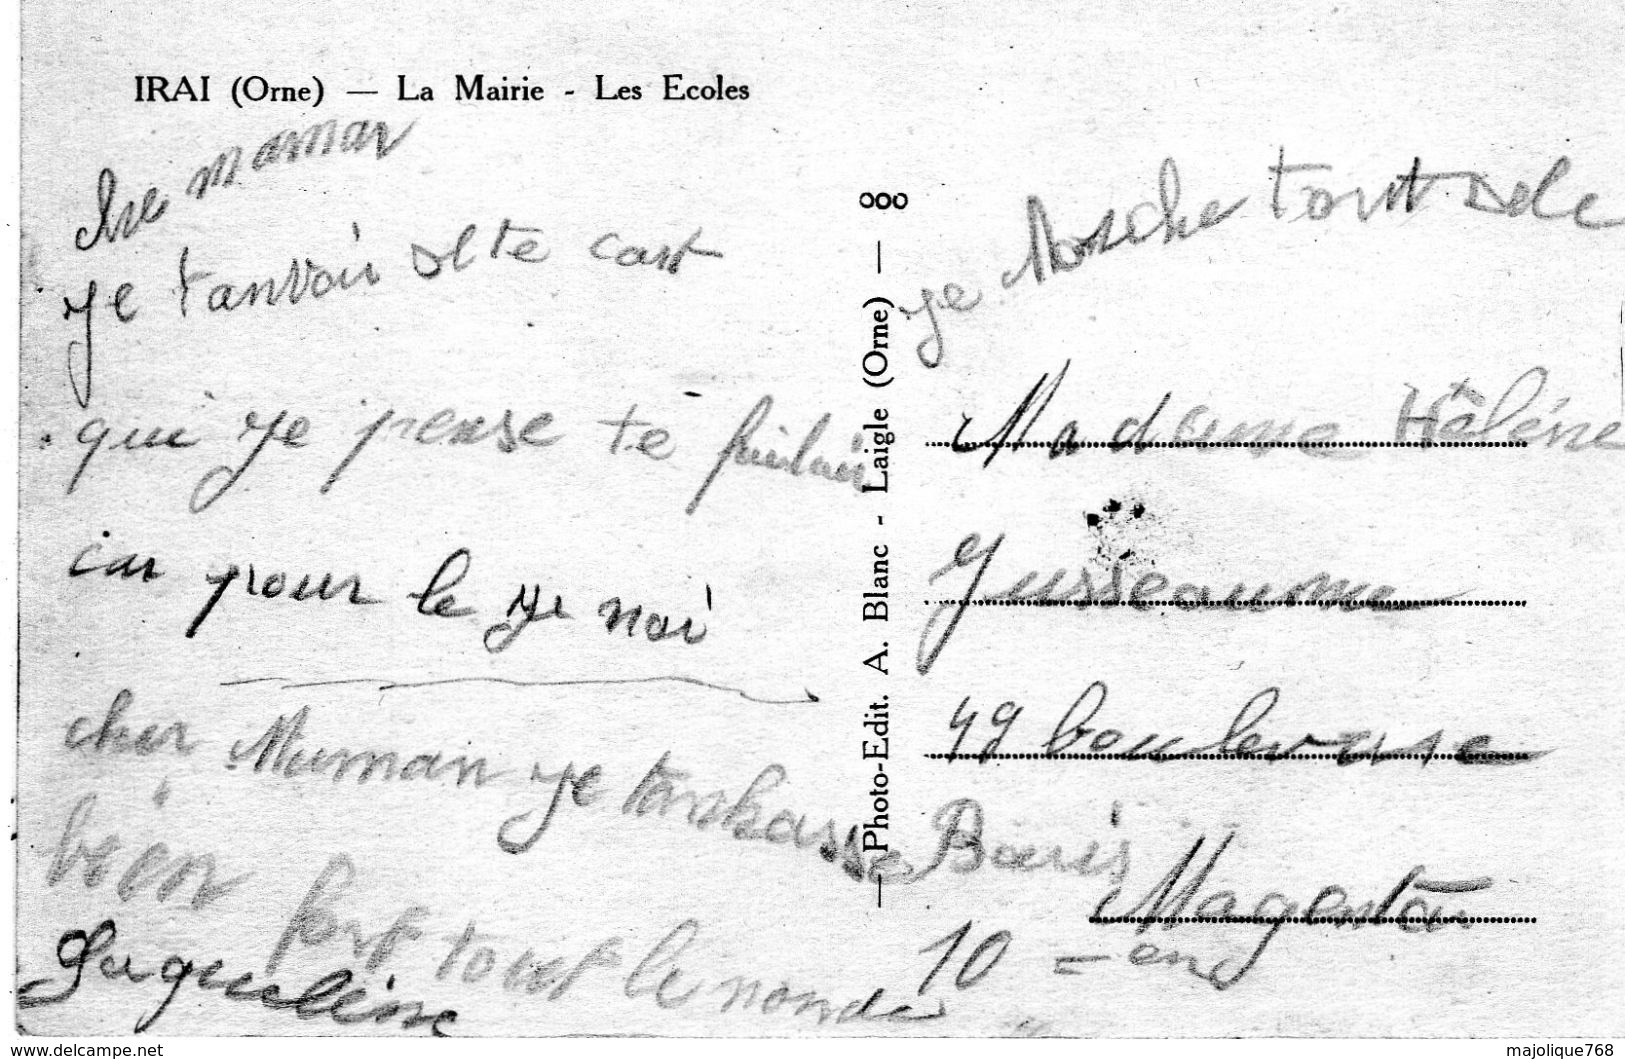 IRAI (Orne) — La Mairie - Les Ecoles
maman
je tanvoir set te cart
qui je pense te
car pour le je noi
cher Maman je tanbrasse
bien fort tout le monde
Jaqueléne
— Photo-Edit. A. Blanc - Laigle (Orne) —
je tout
Madame Hâléne
Jusseaume
49 bouleverse
Magenta
Baris
10 = em
www.delcampe.net
majolique768